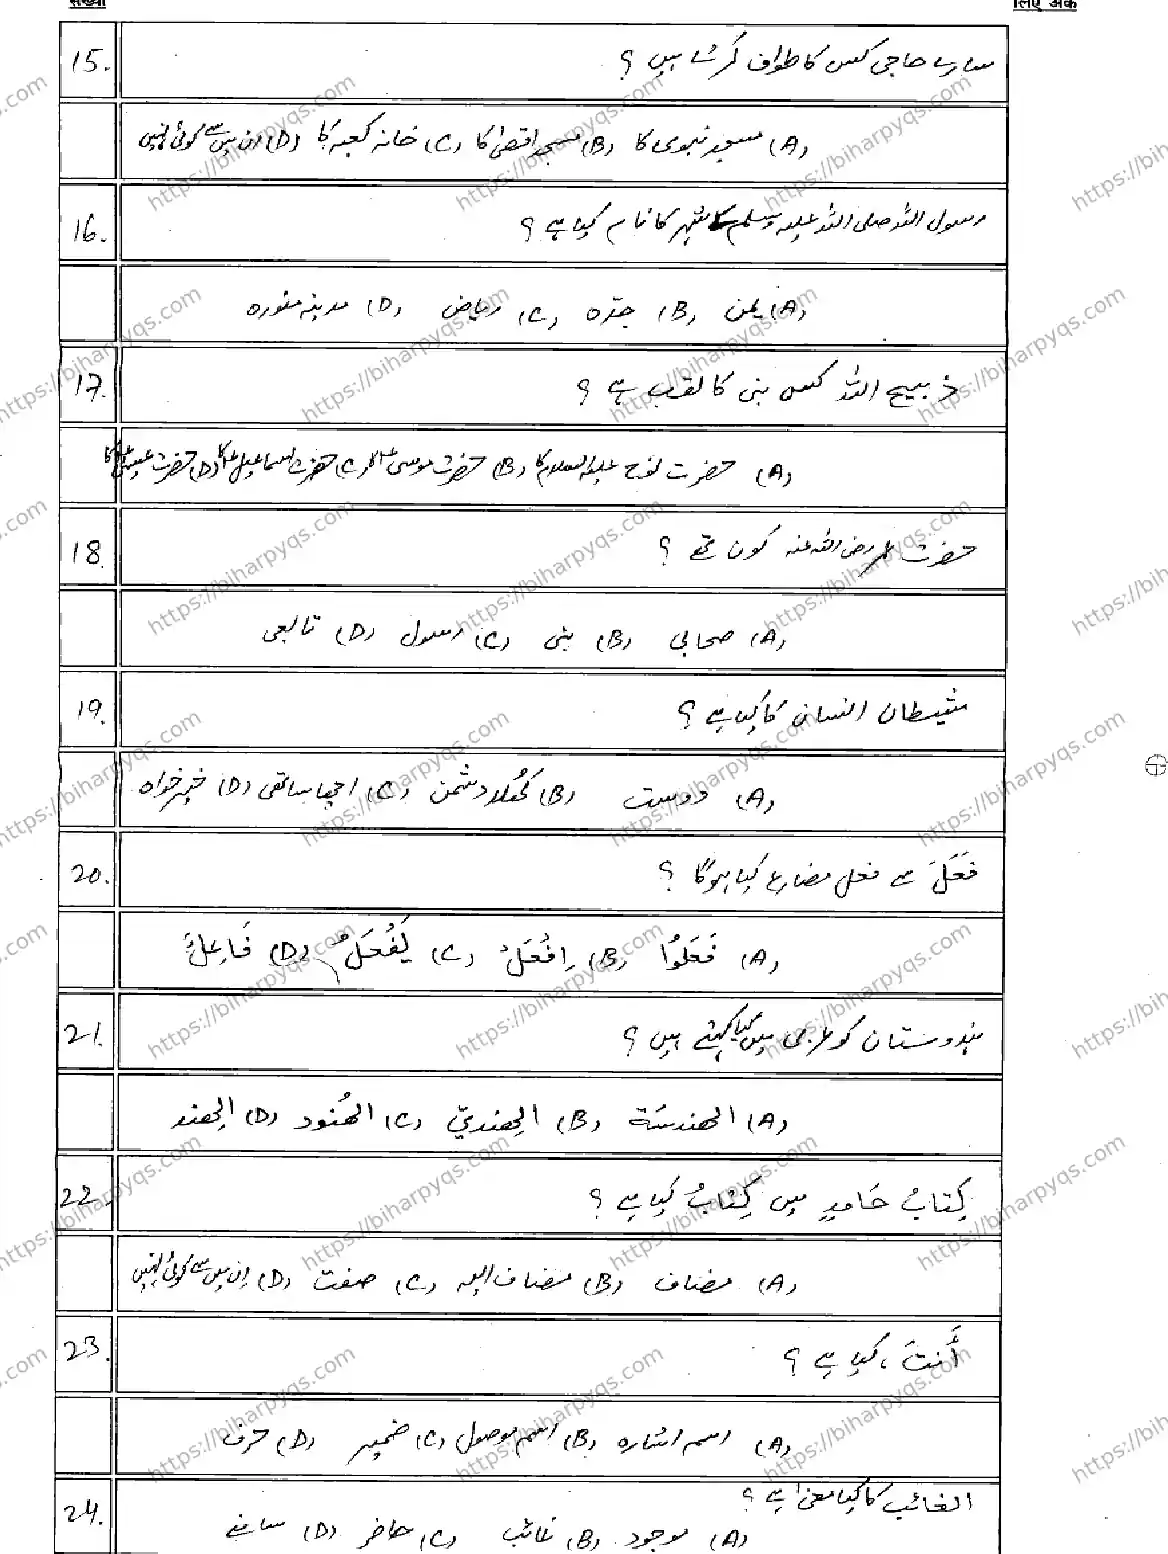 संख्या
लिए अंक
15. سارے حاجی کس کا طواف کرتے ہیں ؟
(A) مسجد نبوی کا (B) مسجد اقصیٰ کا (C) خانہ کعبہ کا (D) ان میں سے کوئی نہیں
16. رسول اللہ صلی اللہ علیہ وسلم کے شہر کا نام کیا ہے ؟
(A) یمن (B) جدّہ (C) ریاض (D) مدینہ منورہ
17. ذبیح اللہ کس نبی کا لقب ہے ؟
(A) حضرت نوح علیہ السلام کا (B) حضرت موسی (C) حضرت اسماعیل کا (D) حضرت عیسیٰ کا
18. حضرت عمر رضی اللہ عنہ کون تھے ؟
(A) صحابی (B) نبی (C) رسول (D) تابعی
19. شیطان انسان کا کیا ہے ؟
(A) دوست (B) کُھلا دشمن (C) اچھا ساتھی (D) خیر خواہ
20. فَعَلَ سے فعل مضارع کیا ہوگا ؟
(A) فَعَلُوا (B) اِفْعَلْ (C) یَفْعَلُ (D) فَاعِلٌ
21. ہندوستان کو عربی میں کیا کہتے ہیں ؟
(A) الھندسَة (B) الھِندیّ (C) الھُنود (D) الھِند
22. کِتابُ حَامدٍ میں کِتابُ کیا ہے ؟
(A) مضاف (B) مضاف الیہ (C) صفت (D) ان میں سے کوئی نہیں
23. أَنتَ ، کیا ہے ؟
(A) اسم اشارہ (B) اسم موصول (C) ضمیر (D) حرف
24. الغائب کا کیا معنیٰ ہے ؟
(A) موجود (B) غائب (C) حاضر (D) سامنے
https://biharpyqs.com